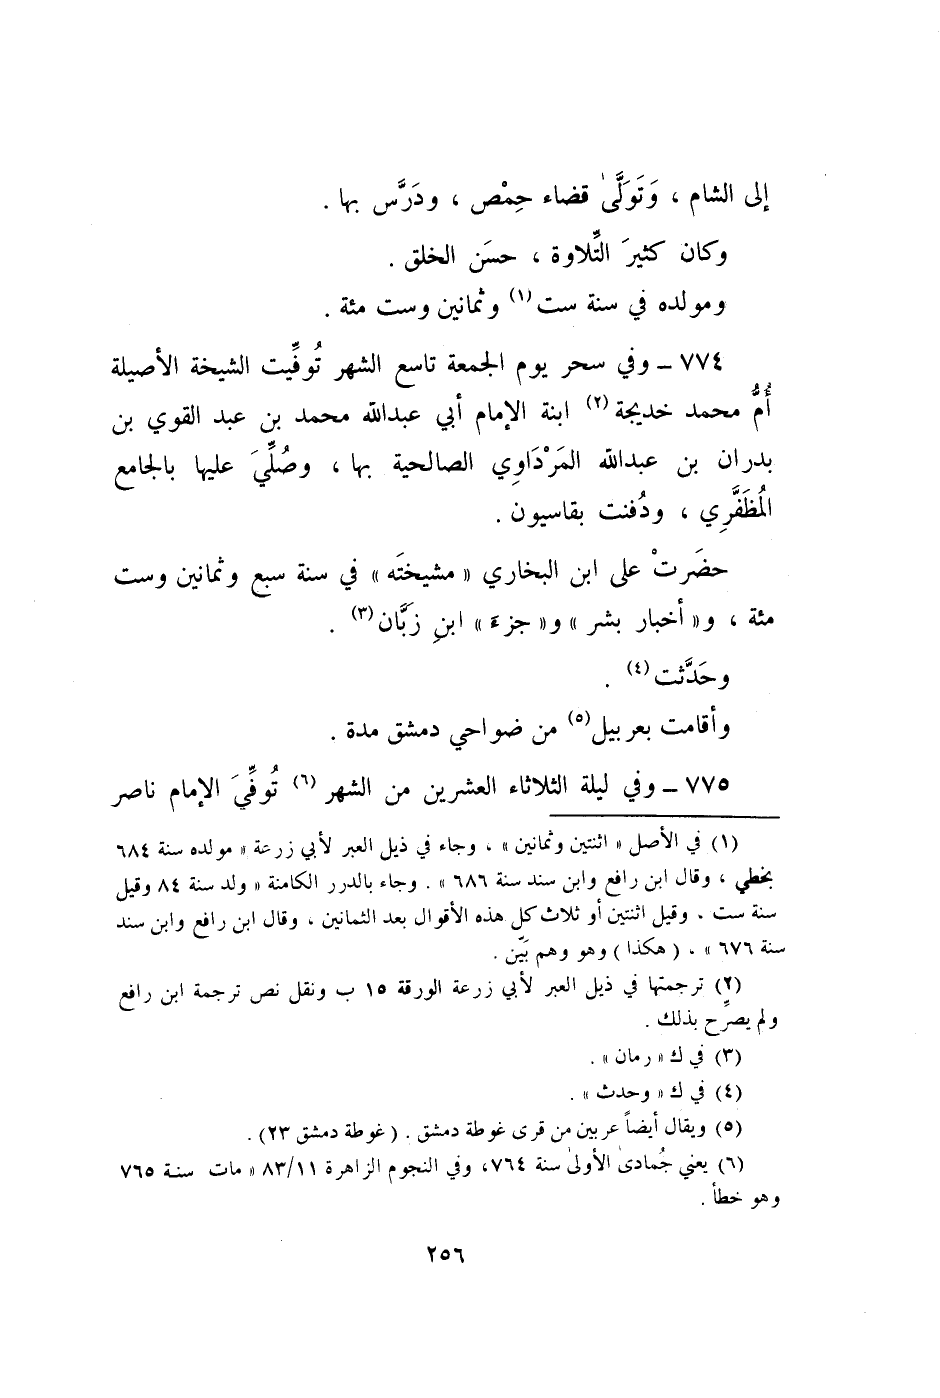 إلى الشام ، وَتَوَلَّىٰ قضاء حِمْص ، ودَرَّس بها .
وكان كثيرَ التِّلاوة ، حسَن الخلق .
ومولده في سنة ست (١) وثمانين وست مئة .
٧٧٤ ـ وفي سحر يوم الجمعة تاسع الشهر تُوفِّيت الشيخة الأصيلة
أُمُّ محمد خديجة (٢) ابنة الإمام أبي عبدالله محمد بن عبد القوي بن
بدران بن عبدالله المَرْدَاوِي الصالحية بها ، وصُلِّيَ عليها بالجامع
المُظَفَّرِي ، ودُفنت بقاسيون .
حضَرتْ على ابن البخاري « مشيختَه » في سنة سبع وثمانين وست
مئة ، و« أخبار بشر » و« جزءَ » ابنِ زَبَّان (٣) .
وحَدَّثت (٤) .
وأقامت بعربيل (٥) من ضواحي دمشق مدة .
٧٧٥ ـ وفي ليلة الثلاثاء العشرين من الشهر (٦) تُوفِّيَ الإمام ناصر
(١) في الأصل « اثنتين وثمانين » ، وجاء في ذيل العبر لأبي زرعة « مولده سنة ٦٨٤
بخطي ، وقال ابن رافع وابن سند سنة ٦٨٦ » . وجاء بالدرر الكامنة « ولد سنة ٨٤ وقيل
سنة ست . وقيل اثنتين أو ثلاث كل هذه الأقوال بعد الثمانين ، وقال ابن رافع وابن سند
سنة ٦٧٦ » . ( هكذا ) وهو وهم بَيِّن .
(٢) ترجمتها في ذيل العبر لأبي زرعة الورقة ١٥ ب ونقل نص ترجمة ابن رافع
ولم يصرِّح بذلك .
(٣) في ك « رمان » .
(٤) في ك « وحدث » .
(٥) ويقال أيضاً عربين من قرى غوطة دمشق . ( غوطة دمشق ٢٣) .
(٦) يعني جُمادىٰ الأولىٰ سنة ٧٦٤، وفي النجوم الزاهرة ٨٣/١١ « مات سنة ٧٦٥
وهو خطأ .
٢٥٦